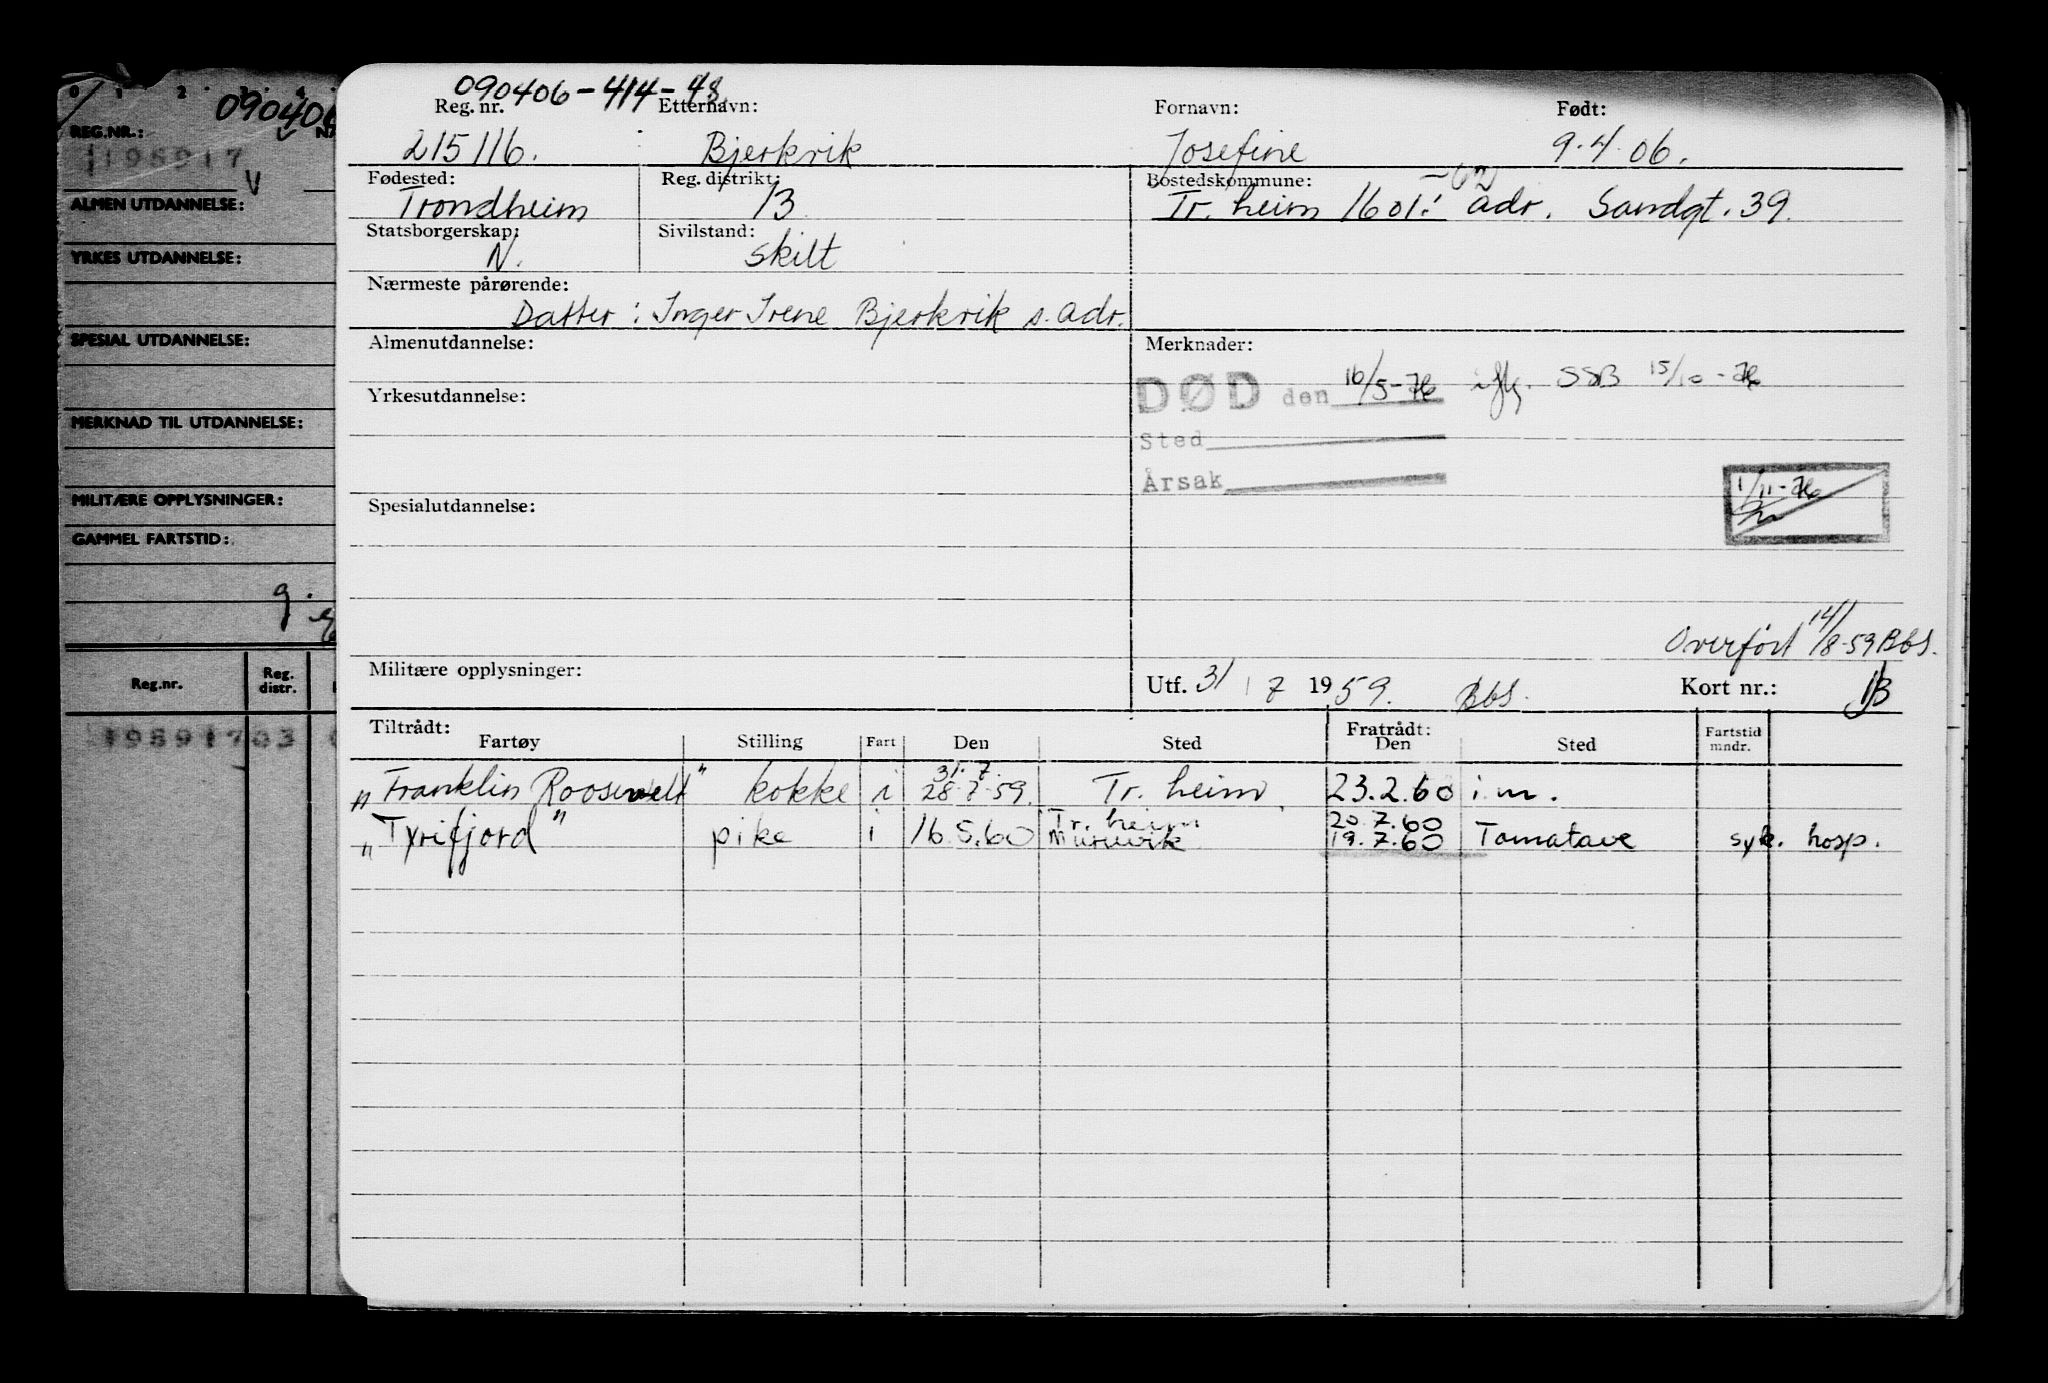 0 1 2 3 4
090406
REG.NR.:
195917
V
ALMEN UTDANNELSE:
YRKES UTDANNELSE:
SPESIAL UTDANNELSE:
MERKNAD TIL UTDANNELSE:
MILITÆRE OPPLYSNINGER:
GAMMEL FARTSTID:
g.
Reg.nr. Reg. distr.
19591703
090406-414-48
Reg. nr. Etternavn: Fornavn: Født:
215116. Bjerkvik Josefine 9.4.06.
Fødested: Reg. distrikt: Bostedskommune: -62
Trondheim B Tr. heim 1601. adr. Sandgt. 39.
Statsborgerskap: Sivilstand:
N. skilt
Nærmeste pårørende:
Datter: Inger Irene Bjerkvik s. adr.
Almenutdannelse: Merknader:
DØD den 16/5-76 iflg. SSB 15/10-76
Yrkesutdannelse:
Sted
Årsak
1/11-76
Spesialutdannelse:
Overført 14/8-59 Bbs.
Militære opplysninger: Utf. 31/7 1959. Bbs. Kort nr.: 1B
Tiltrådt: Fratrådt:
Fartøy Stilling Fart Den Sted Den Sted Fartstid mndr.
31.7.
"Franklin Roosevelt" kokke i 28.7.59. Tr. heim 23.2.60 i.m.
Tr. heim 20.7.60
"Tyrifjord" pike i 16.5.60 Muruvik 19.7.60 Tamatave syk. hosp.